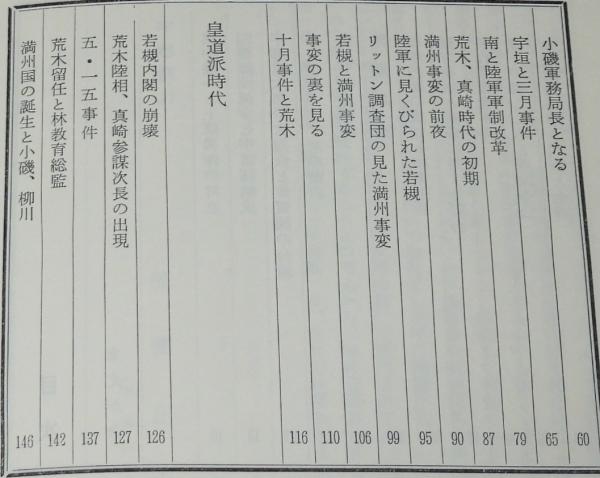 小磯軍務局長となる 60
宇垣と三月事件 65
南と陸軍軍制改革 79
荒木、真崎時代の初期 87
満州事変の前夜 90
陸軍に見くびられた若槻 95
リットン調査団の見た満州事変 99
若槻と満州事変 106
事変の裏を見る 110
十月事件と荒木 116
皇道派時代
若槻内閣の崩壊 126
荒木陸相、真崎参謀次長の出現 127
五・一五事件 137
荒木留任と林教育総監 142
満州国の誕生と小磯、柳川 146